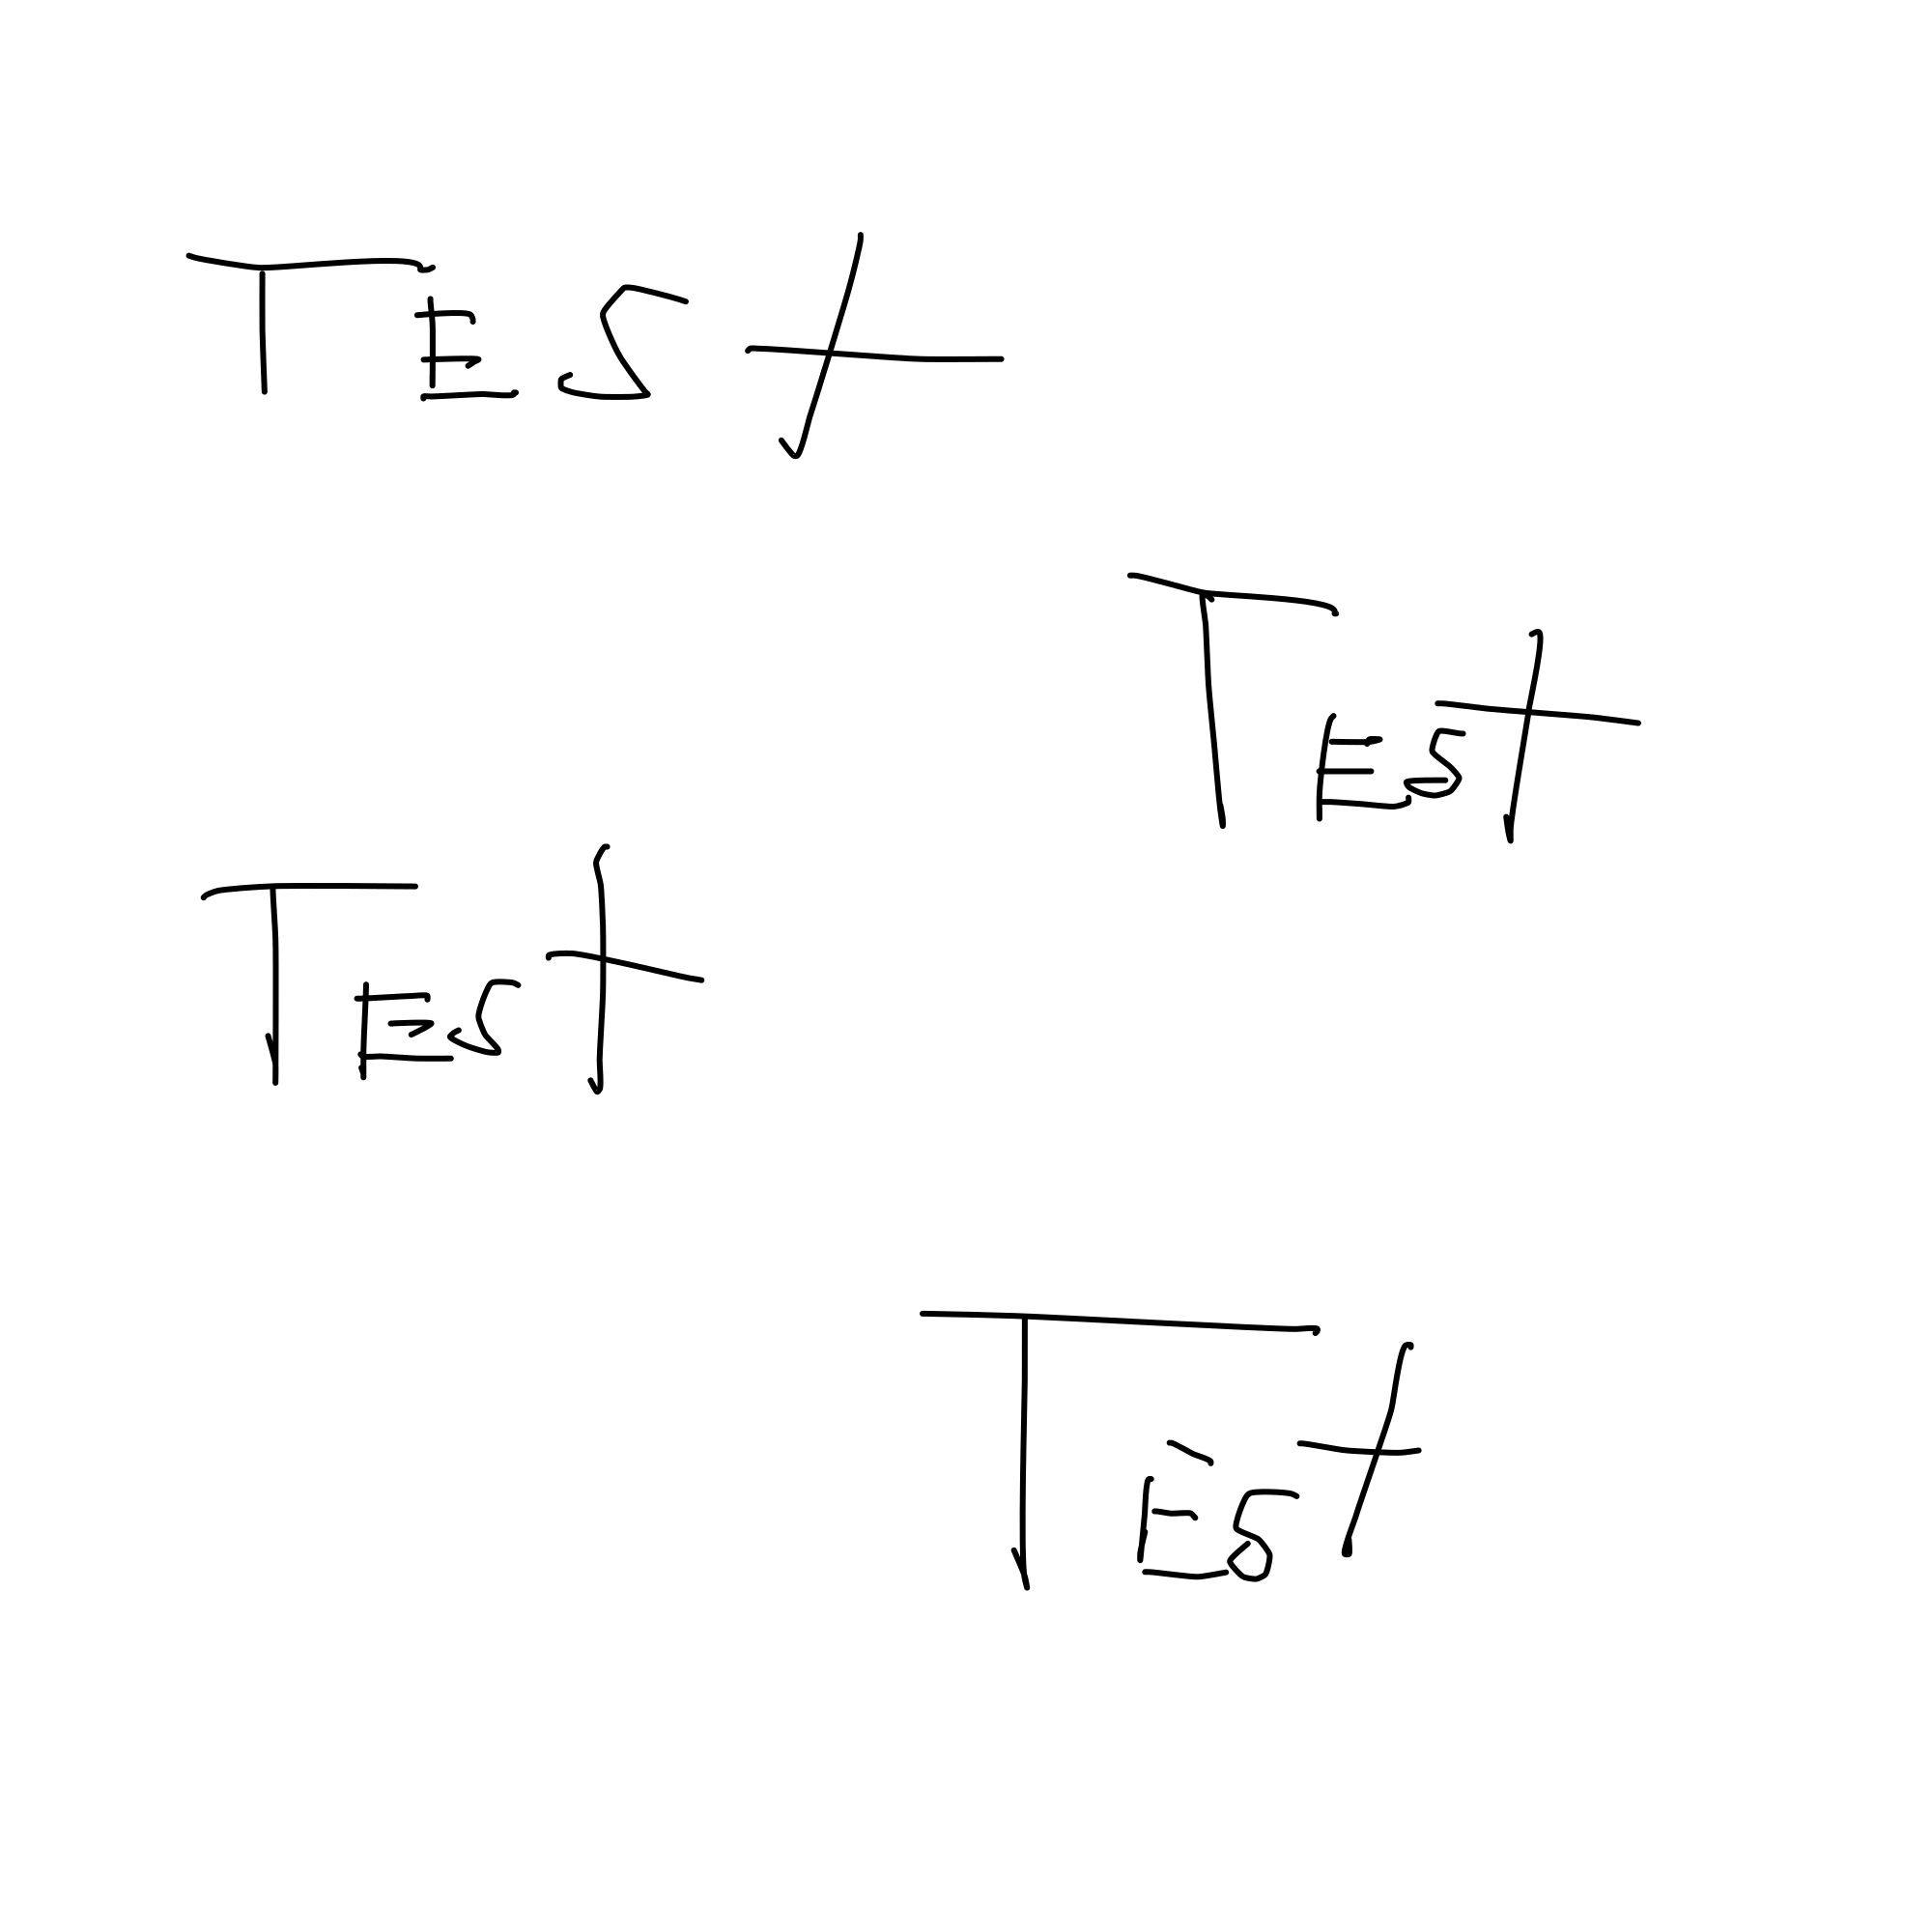 TEst
TEst
TEst
TEst